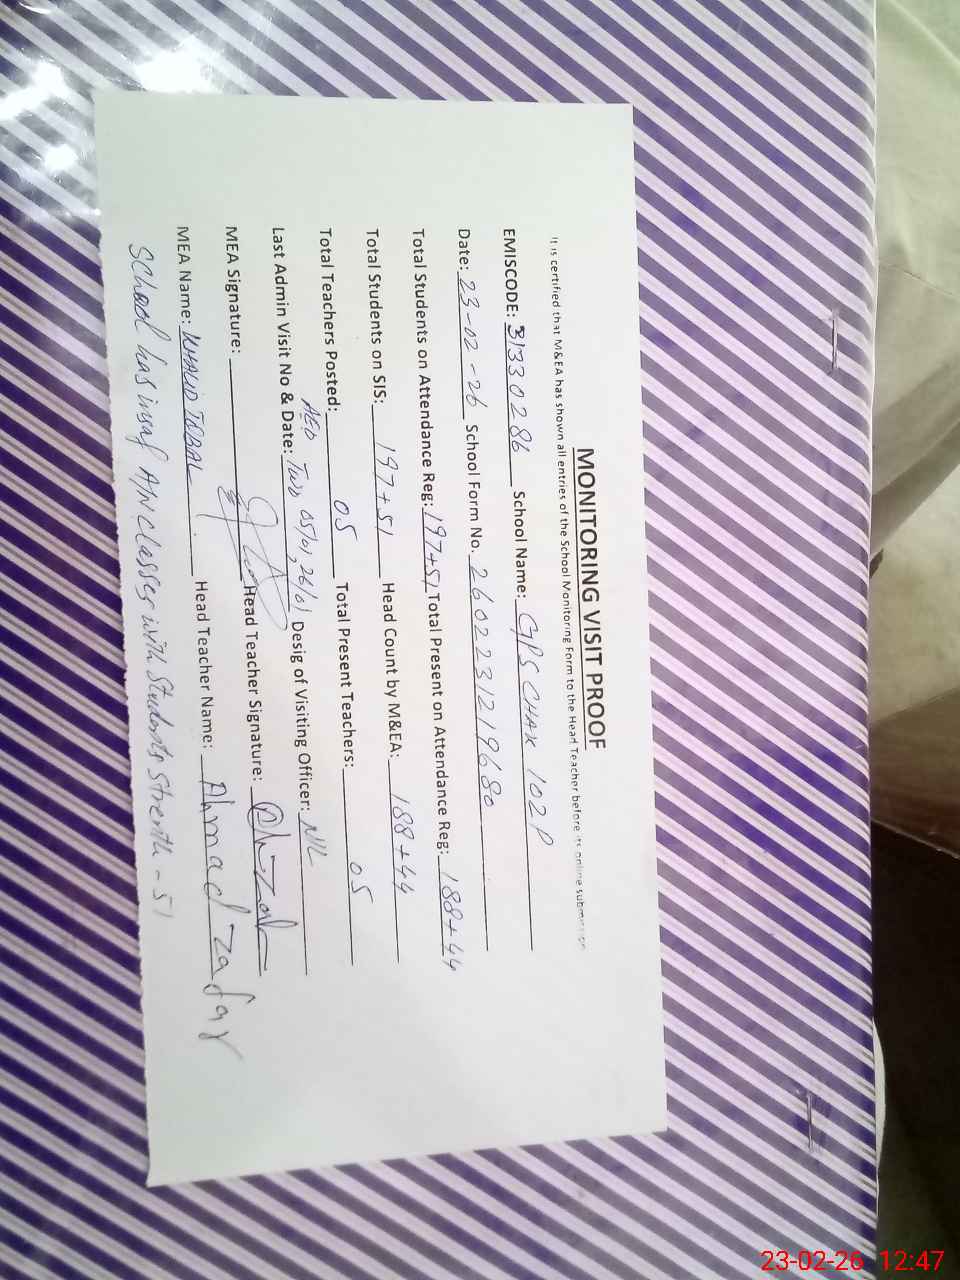 MONITORING VISIT PROOF
It is certified that M&EA has shown all entries of the School Monitoring Form to the Head Teacher before its online submission
EMISCODE: 31330286 School Name: GPS CHAK 102P
Date: 23-02-26 School Form No. 2602231219680
Total Students on Attendance Reg: 197+51 Total Present on Attendance Reg: 188+44
Total Students on SIS: 197+51 Head Count by M&EA: 188+44
Total Teachers Posted: 05 Total Present Teachers: 05
AEO
Last Admin Visit No & Date: Two 05/01, 26/01 Desig of Visiting Officer: NIL
MEA Signature: Head Teacher Signature:
MEA Name: KHALID IQBAL Head Teacher Name: Ahmad Zafar
School has insaf A/N Classes with Students Strenth - 51
23-02-26 12:47